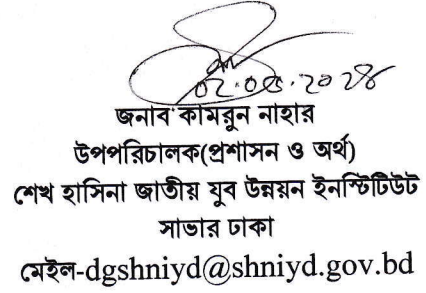 ০২.০৫.২০২৪
জনাব কামরুন নাহার
উপপরিচালক(প্রশাসন ও অর্থ)
শেখ হাসিনা জাতীয় যুব উন্নয়ন ইনস্টিটিউট
সাভার ঢাকা
মেইল-dgshniyd@shniyd.gov.bd